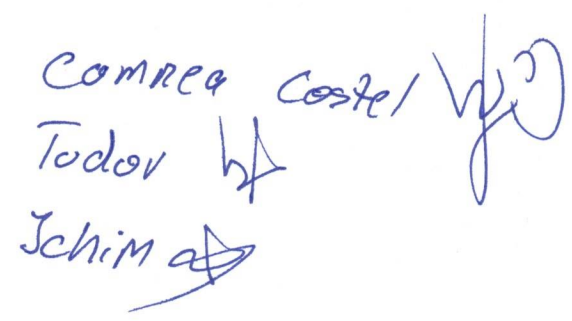 Comnea Costel
Todor
Ichim